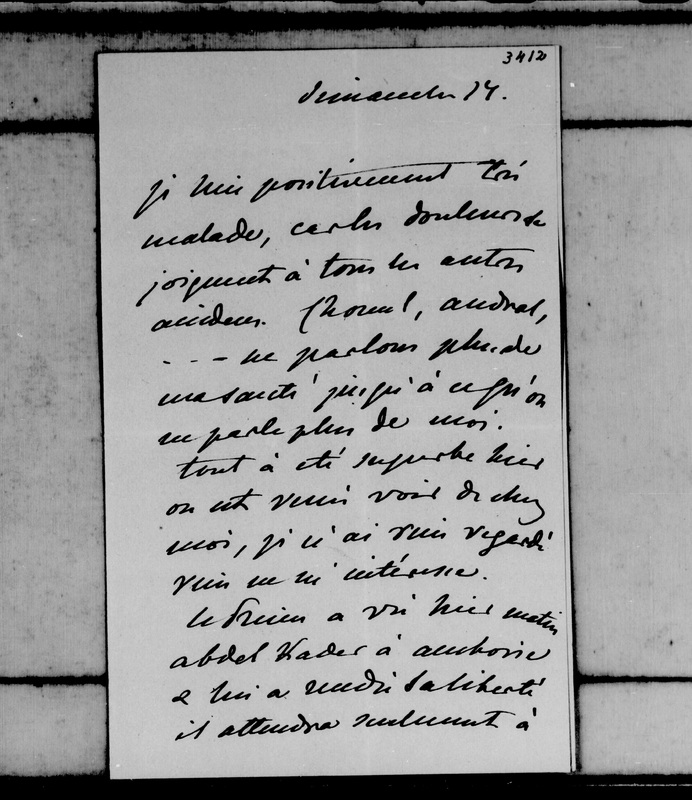 3412
dimanche 17.
je suis positivement très
malade, car les douleurs se
joignent à tous les autres
accidens. Chomel, andral,
- - - ne parlons plus de
ma santé jusqu'à ce qu'on
ne parle plus de moi.
tout à été superbe hier
on est venu voir de chez
moi, je n'ai rien regardé
rien ne m'intéresse.
le Prince a vu hier matin
abdel Kader à amboise
& lui a rendu sa liberté
il attendra seulement à